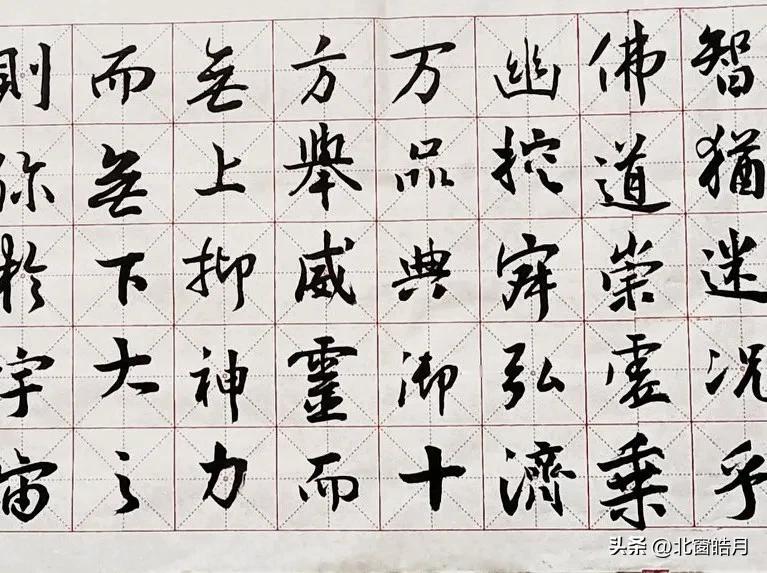 智猶迷况乎
佛道崇虛乘
幽控寂弘濟
万品典御十
方舉威靈而
無上抑神力
而無下大之
則弥於宇宙
头条 @北窗皓月